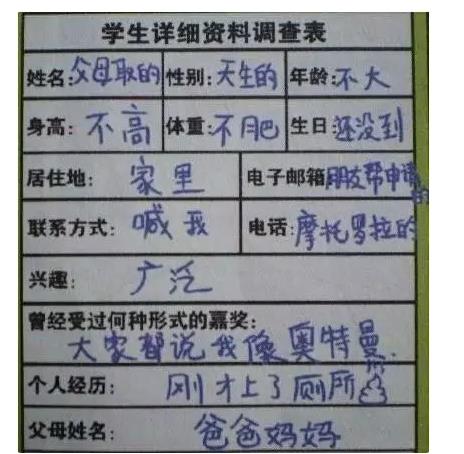 学生详细资料调查表
姓名:父母取的 性别:天生的 年龄:不大
身高:不高 体重:不肥 生日:还没到
居住地:家里 电子邮箱:朋友帮申请的
联系方式:喊我 电话:摩托罗拉的
兴趣:广泛
曾经受过何种形式的嘉奖:
大家都说我像奥特曼.
个人经历:刚才上了厕所
父母姓名:爸爸妈妈